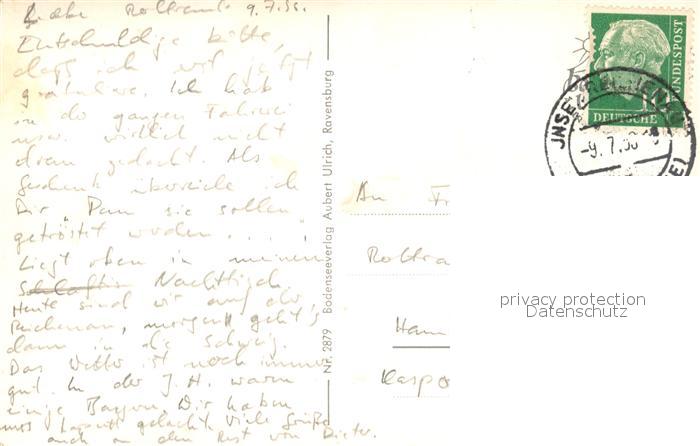 Liebe Roltraut 9.7.56.
Entschuldige bitte,
daß ich erst jetzt
gratuliere. Ich hab
in der ganzen Fahrerei
usw. wirklich nicht
dran gedacht. Als
Geschenk überreiche ich
Dir „Denn sie sollen
getröstet werden....
Liegt oben in meinem
Nachttisch.
Heute sind wir auf der
Reichenau, morgen geht's
dann in die Schweiz.
Das Wetter ist noch immer
gut. In der J.H. waren
einige Bayern. Wir haben
uns gelacht. Viele Grüße
auch an den Rest von Dieter.
Nr. 2879 Bodenseeverlag Aubert Ulrich, Ravensburg
DEUTSCHE BUNDESPOST
JNSEL REICHENAU
-9.7.56
An Fr
Roltra
Hann
Kaspo
privacy protection
Datenschutz